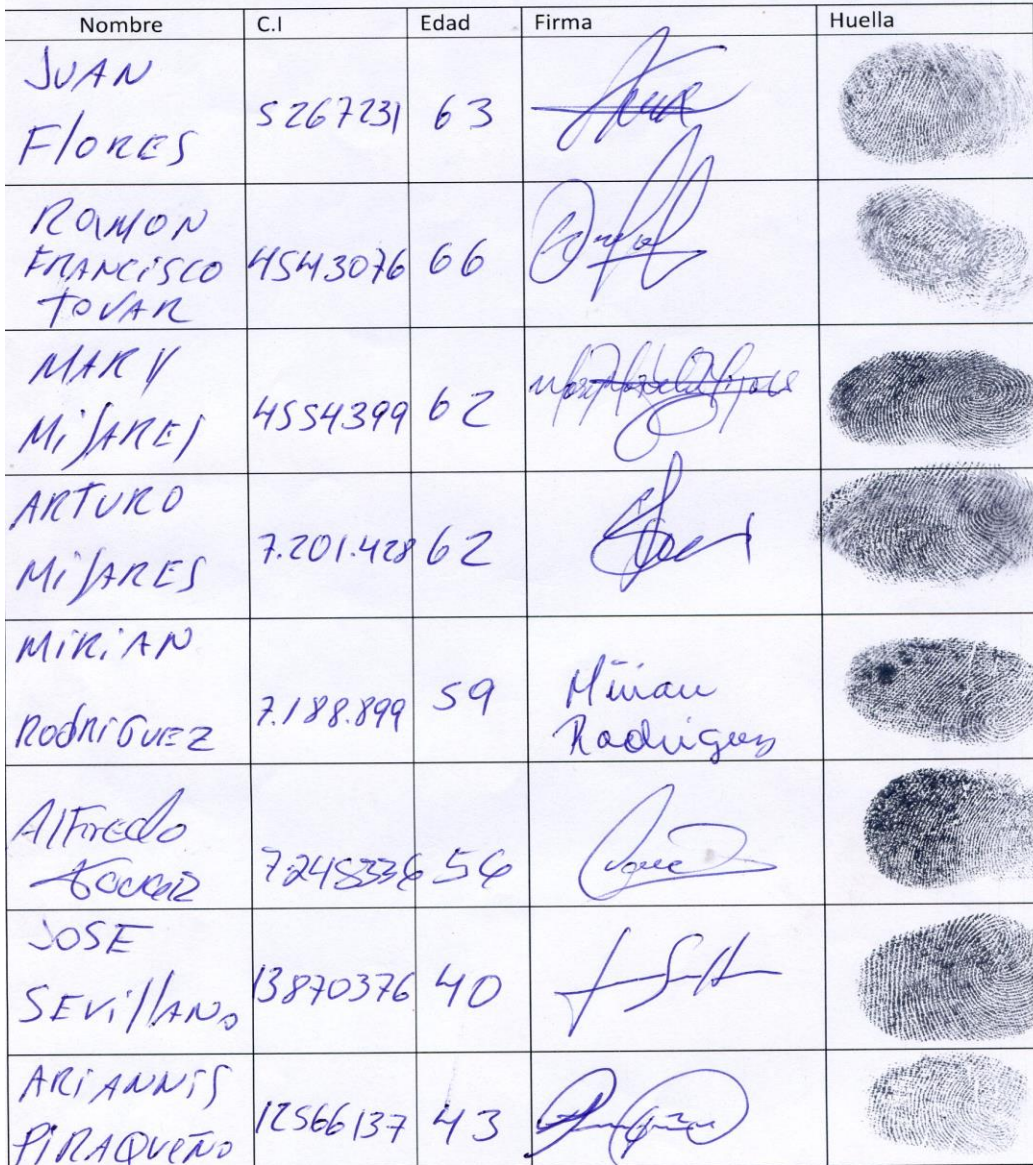 Nombre C.I Edad Firma Huella
JUAN
FlORES
5267231 63
RAMON
FRANCISCO
TOVAR
4543076 66
MARY
MiJARES
4554399 62
ARTURO
MiJARES
7.201.428 62
MiRiAN
RodRiGUEZ
7.188.899 59
Mirian
Rodriguez
AlFredo
7248336 56
JOSE
SEVillANO
13870376 40
ARiANNiS
PiRAQUENO
12566137 43